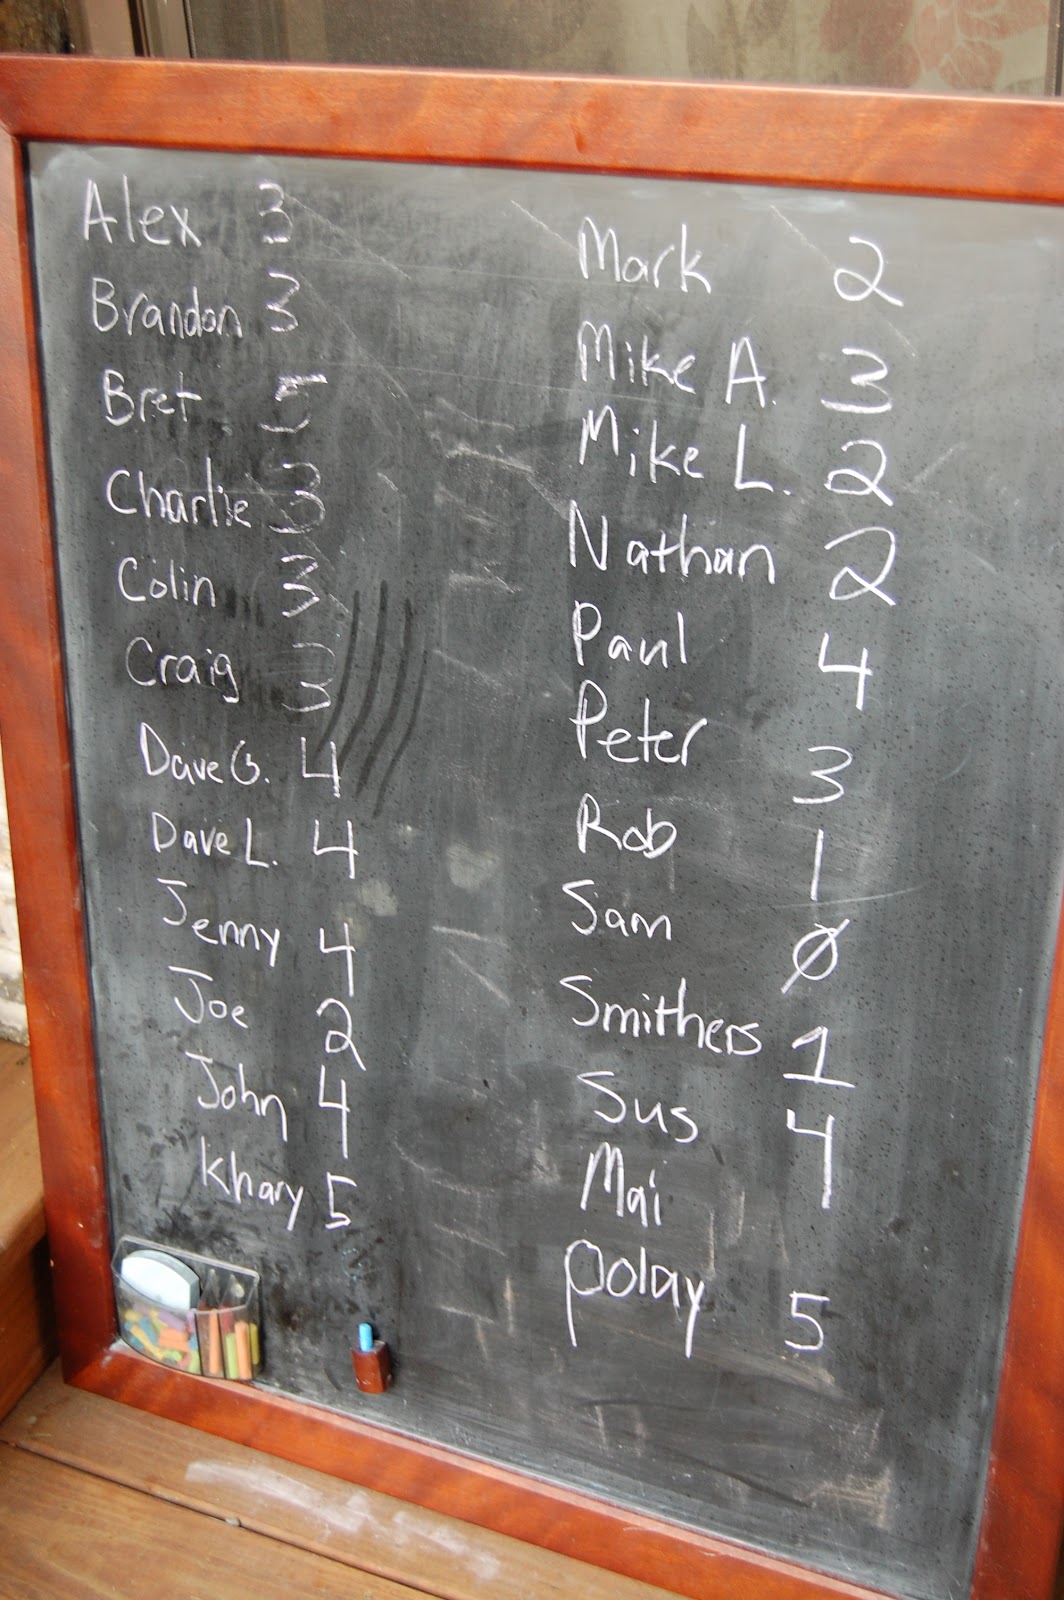 Alex 3
Brandon 3
Bret 5
Charlie 3
Colin 3
Craig 3
Dave G. 4
Dave L. 4
Jenny 4
Joe 2
John 4
Khary 5
Mark 2
Mike A. 3
Mike L. 2
Nathan 2
Paul 4
Peter 3
Rob 1
Sam Ø
Smithers 1
Sus 4
Mai
Polay 5